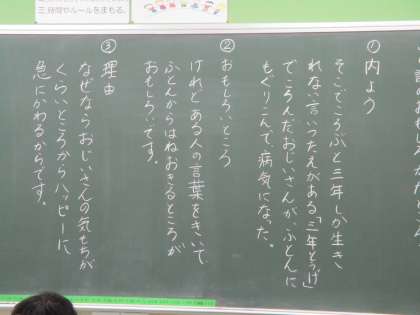 三 時間やルールをまもる。
① 内よう
そこでころぶと三年しか生き
れない言いつたえがある「三年とうげ」
でころんだおじいさんが、ふとんに
もぐりこんで、病気になった。
② おもしろいところ
けれどある人の言葉をきいて
ふとんからはねおきるところが
おもしろいです。
③ 理由
なぜならおじいさんの気もちが
くらいところからハッピーに、
急にかわるからです。